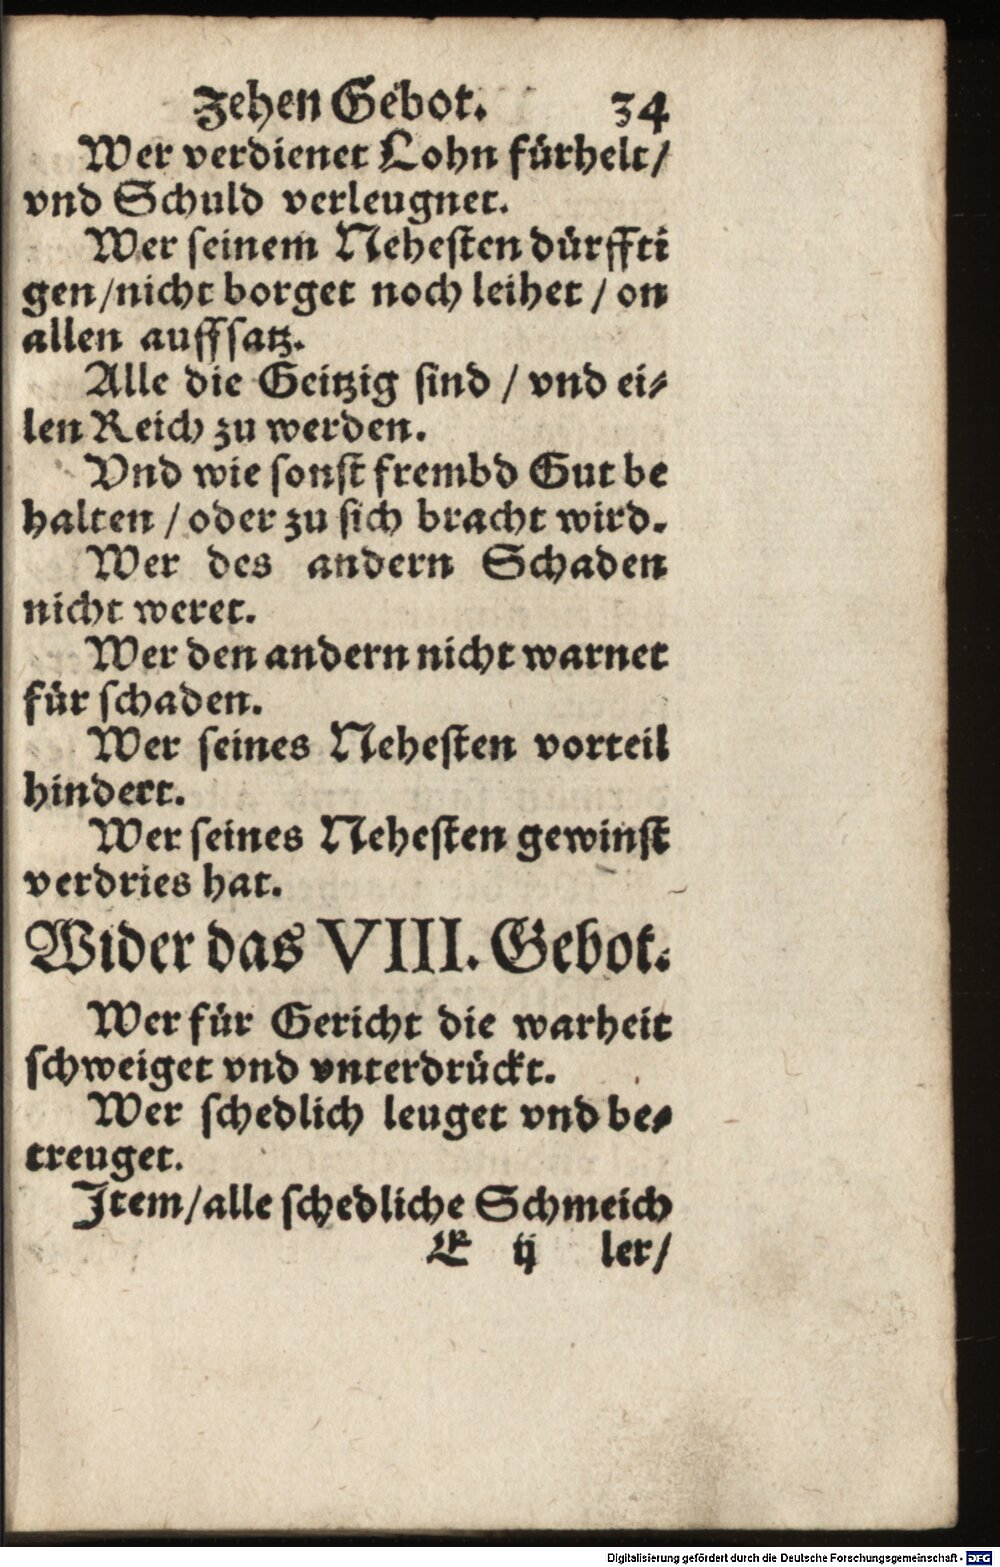 zehen Gebot. 34
Wer verdienet Lohn fürhelt/
vnd Schuld verleugnet.
Wer ſeinem Neheſten dürffti
gen/nicht borget noch leihet / on
allen auffſatz.
Alle die Geitzig ſind / vnd ei⸗
len Reich zu werden.
Vnd wie ſonſt frembd Gut be
halten / oder zu ſich bracht wird.
Wer des andern Schaden
nicht weret.
Wer den andern nicht warnet
für ſchaden.
Wer ſeines Neheſten vorteil
hindert.
Wer ſeines Neheſten gewinſt
verdries hat.
Wider das VIII. Gebot.
Wer für Gericht die warheit
ſchweiget vnd vnterdrückt.
Wer ſchedlich leuget vnd be⸗
treuget.
Item/alle ſchedliche Schmeich
E ij ler/
Digitalisierung gefördert durch die Deutsche Forschungsgemeinschaft - DFG